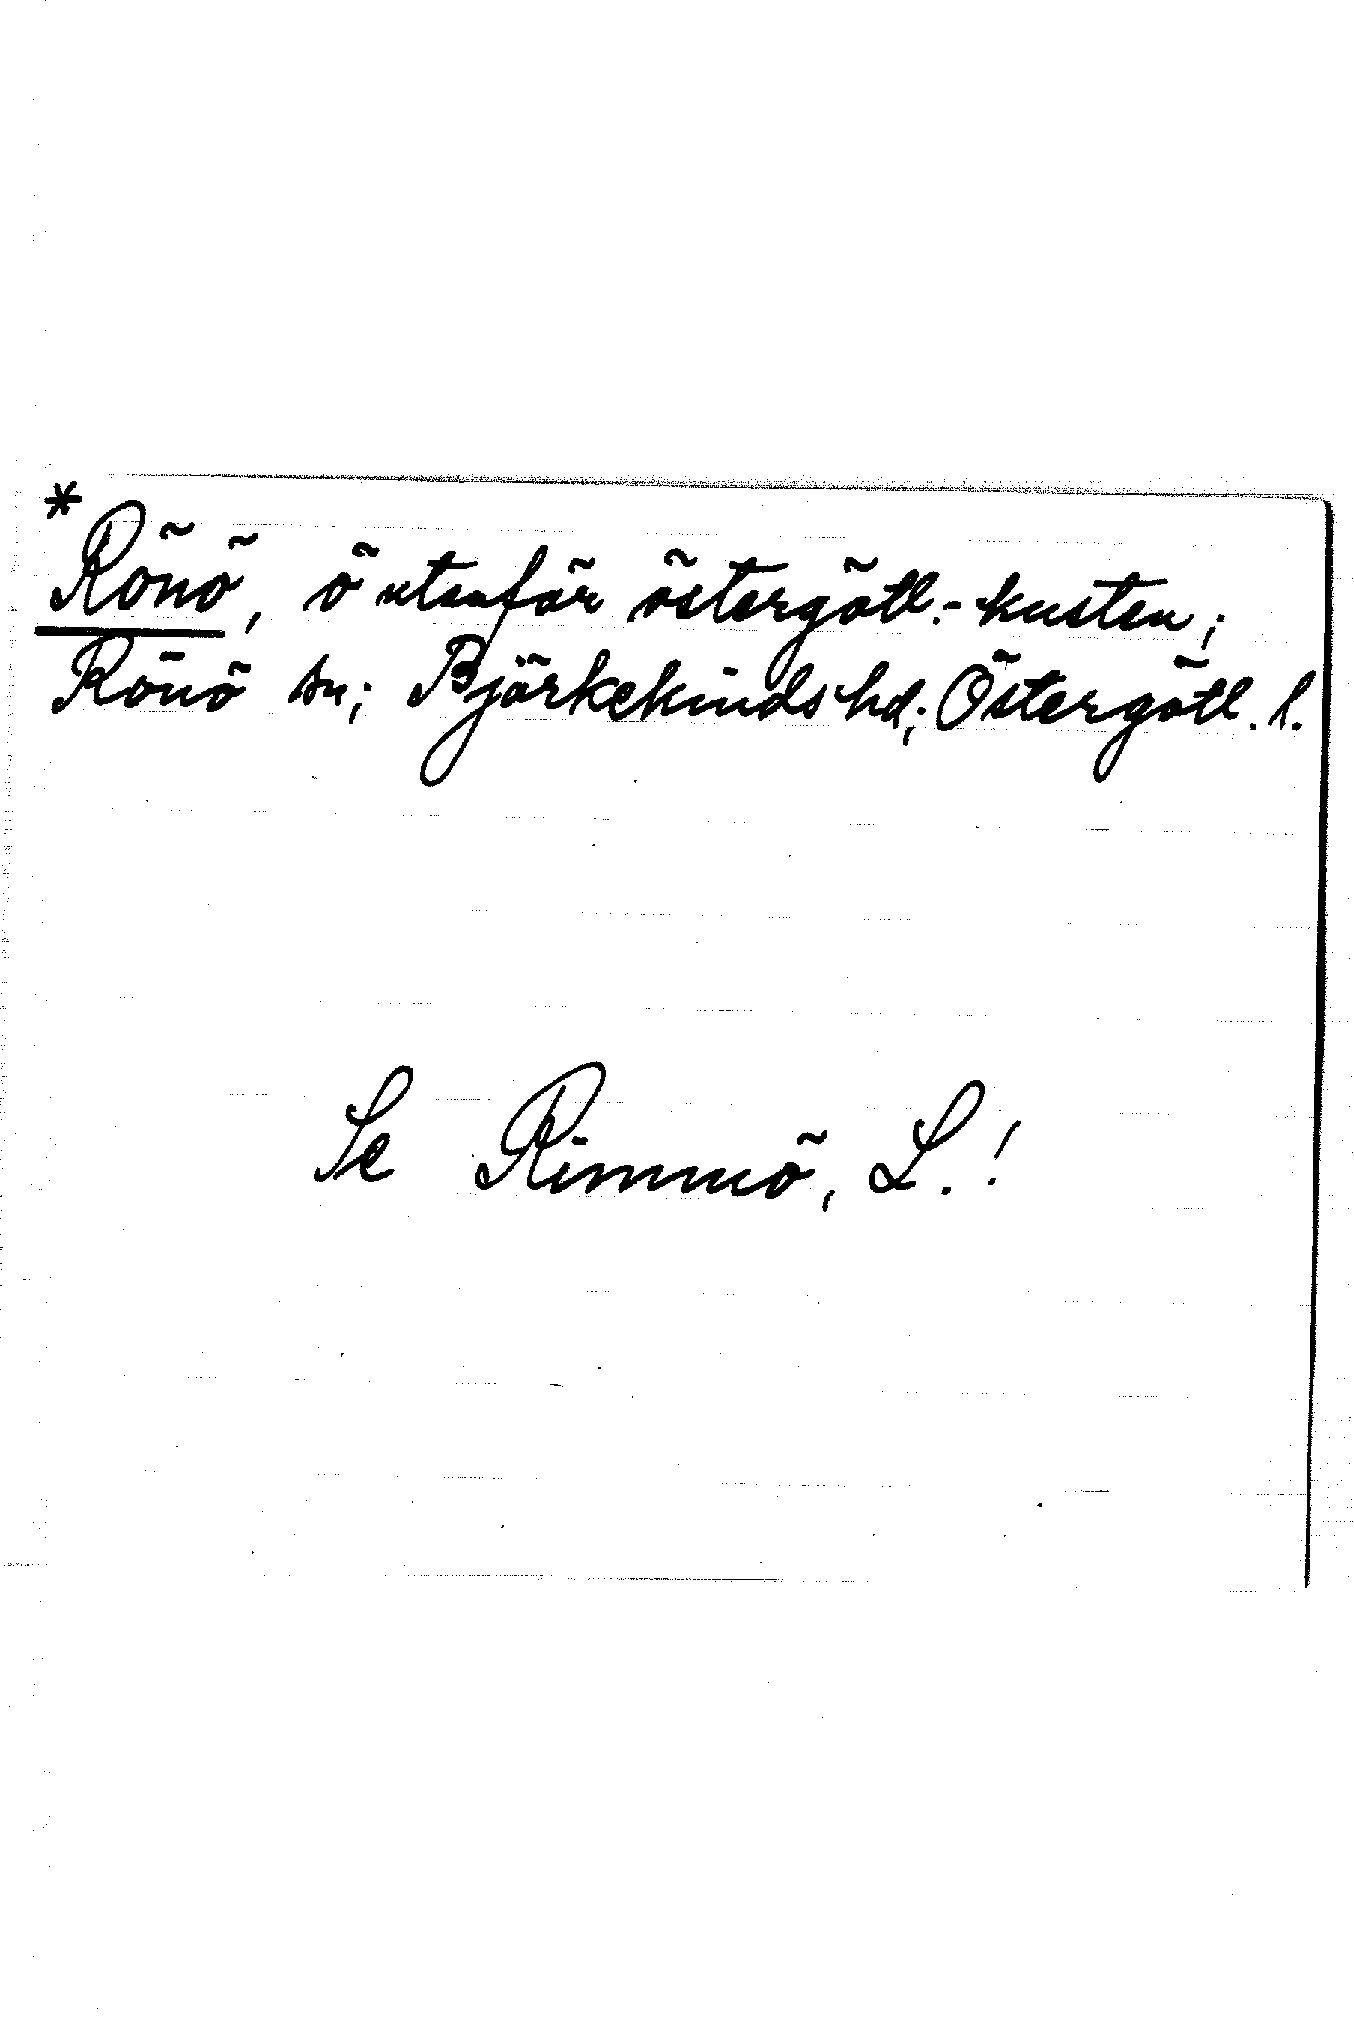 *
Rönö, ö utanför östergötl.-kusten;
Rönö sn; Björkekinds hd; Östergötl. l.
Se Rimmö, L.!